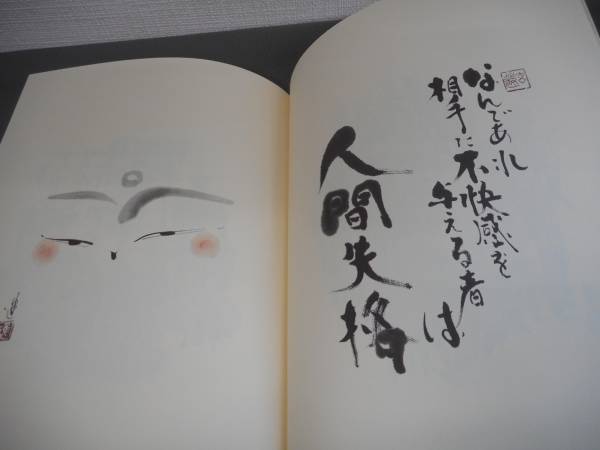 なんであれ
相手に不快感を
与える者は
人間失格